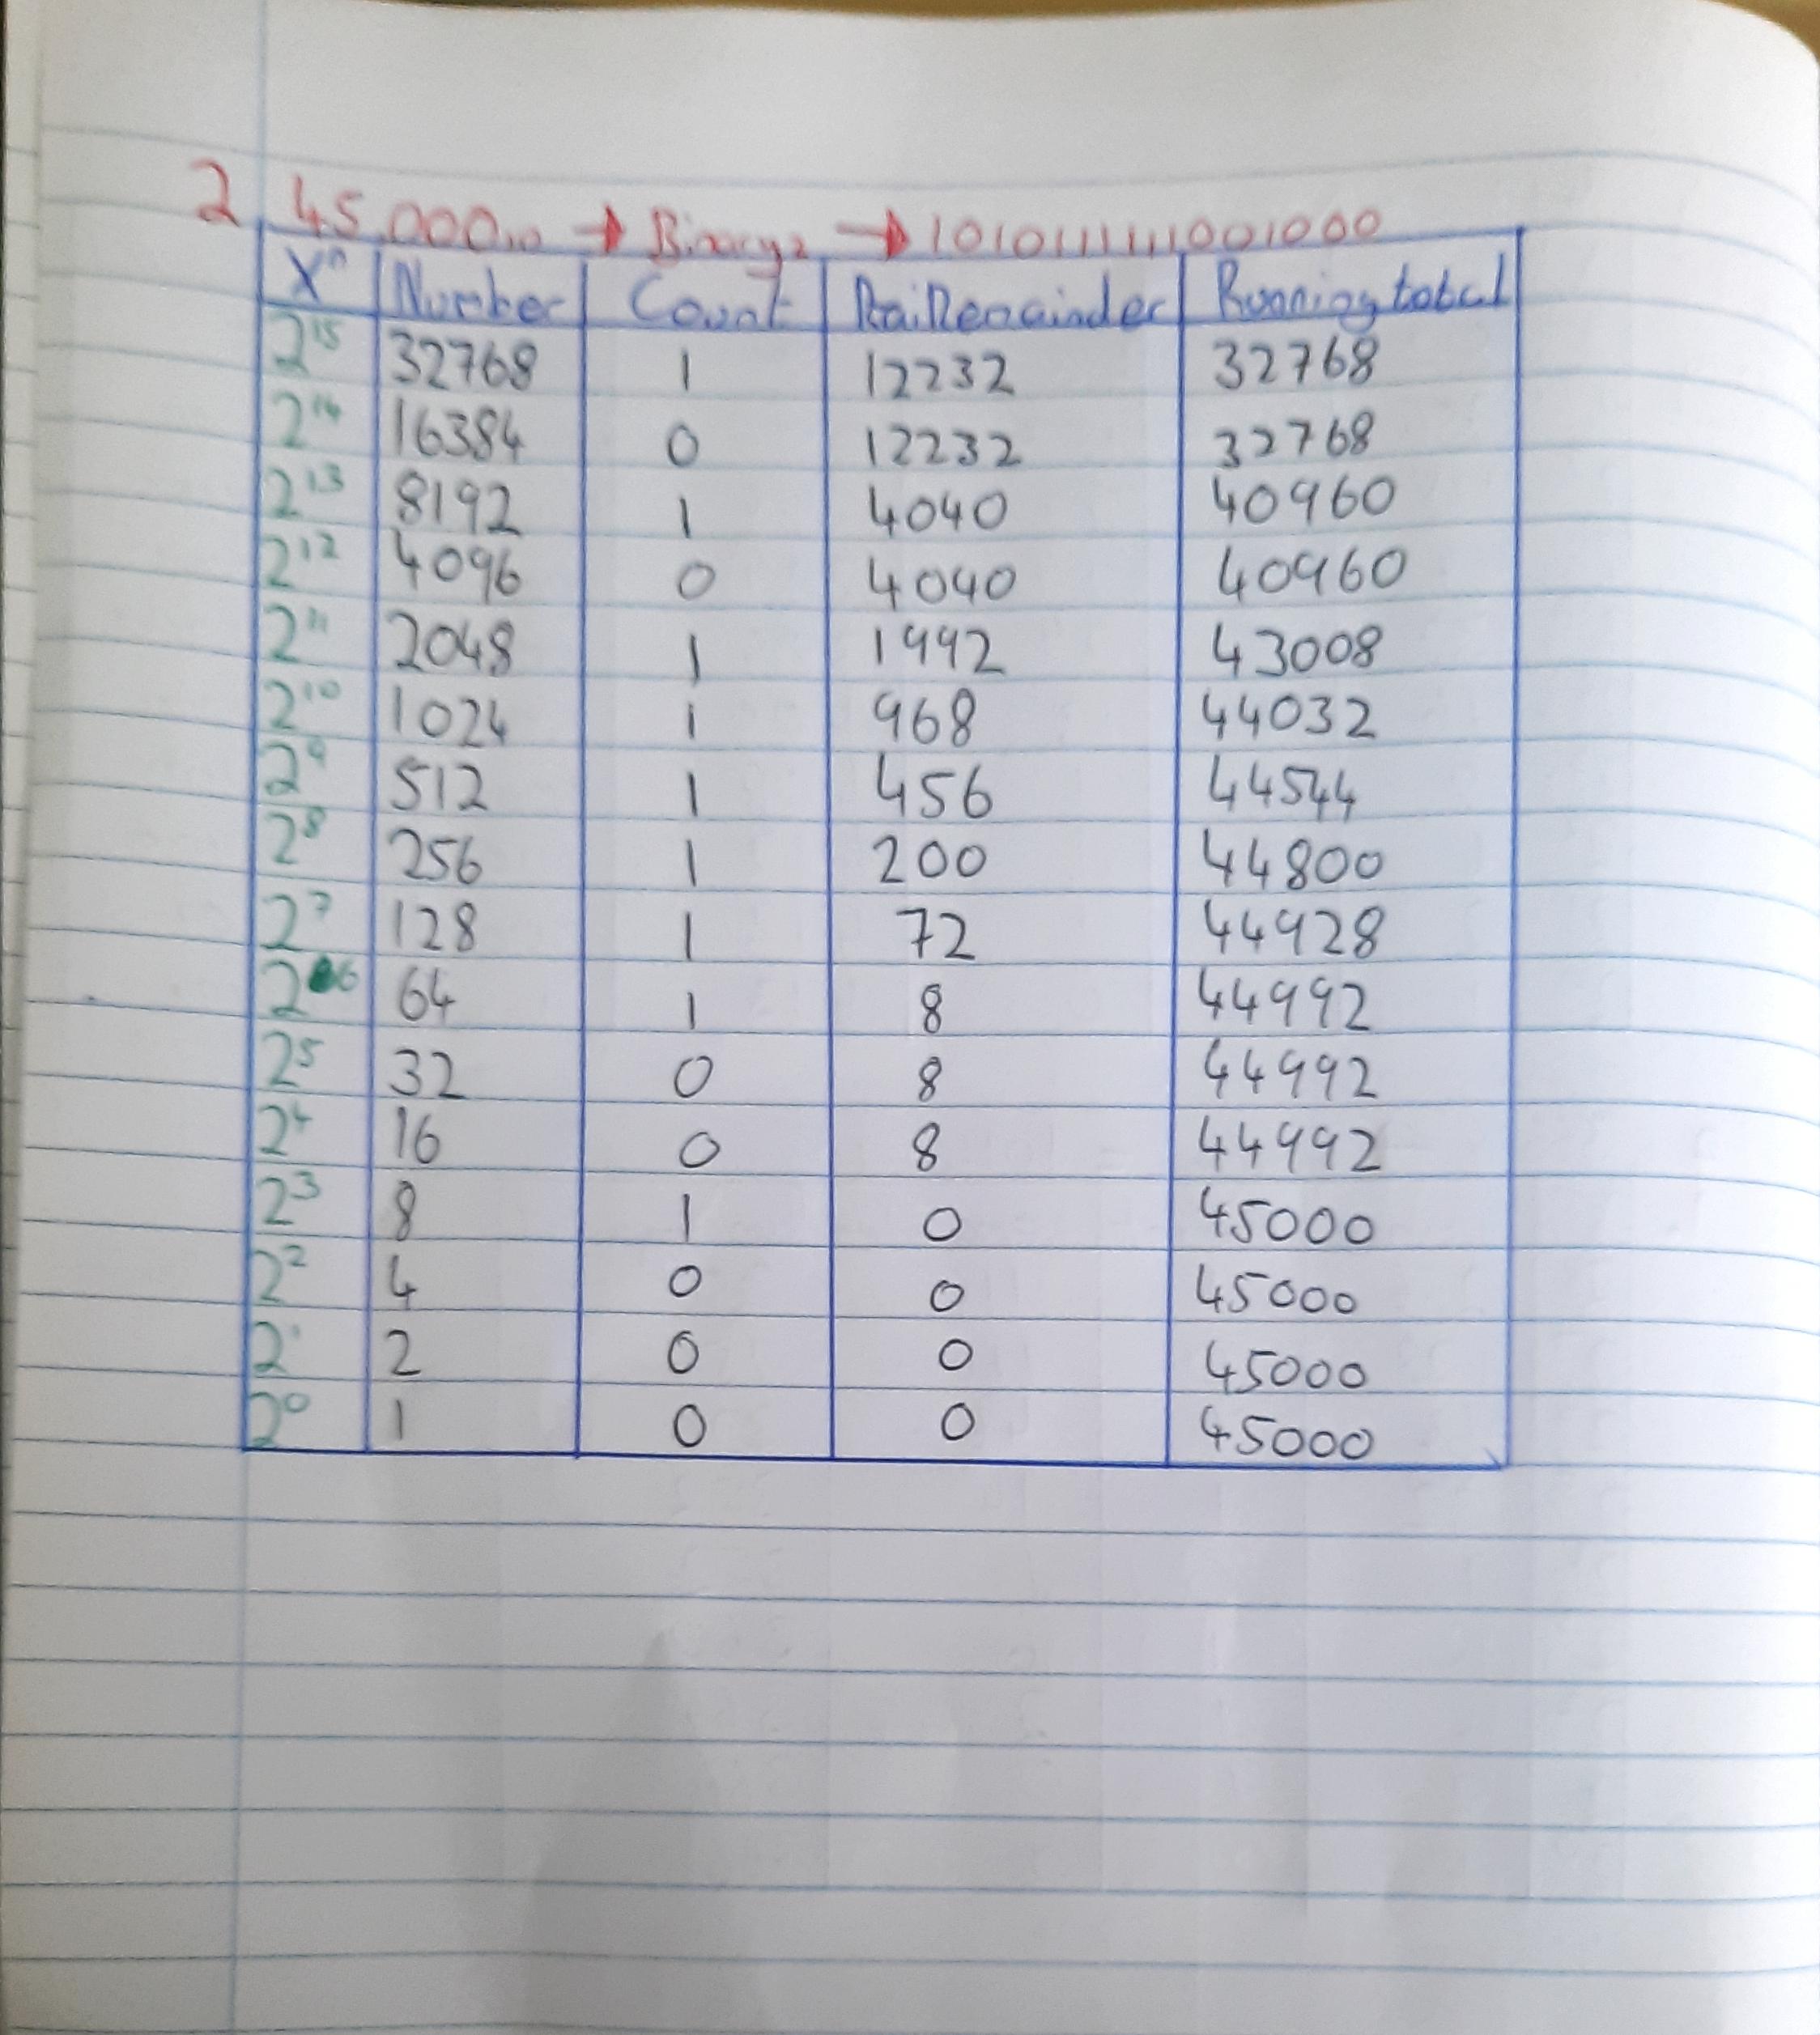 2 45,000₁₀ → Binary₂ → 1010111111001000
Xⁿ Number Count Remainder Running total
2¹⁵ 32768 1 12232 32768
2¹⁴ 16384 0 12232 32768
2¹³ 8192 1 4040 40960
2¹² 4096 0 4040 40960
2¹¹ 2048 1 1992 43008
2¹⁰ 1024 1 968 44032
2⁹ 512 1 456 44544
2⁸ 256 1 200 44800
2⁷ 128 1 72 44928
2⁶ 64 1 8 44992
2⁵ 32 0 8 44992
2⁴ 16 0 8 44992
2³ 8 1 0 45000
2² 4 0 0 45000
2¹ 2 0 0 45000
2⁰ 1 0 0 45000